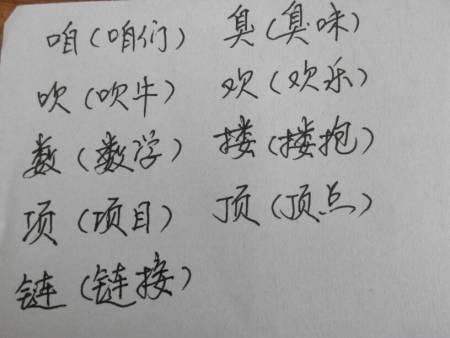 咱(咱们) 臭(臭味)
吹(吹牛) 欢(欢乐)
数(数学) 搂(搂抱)
项(项目) 顶(顶点)
链(链接)